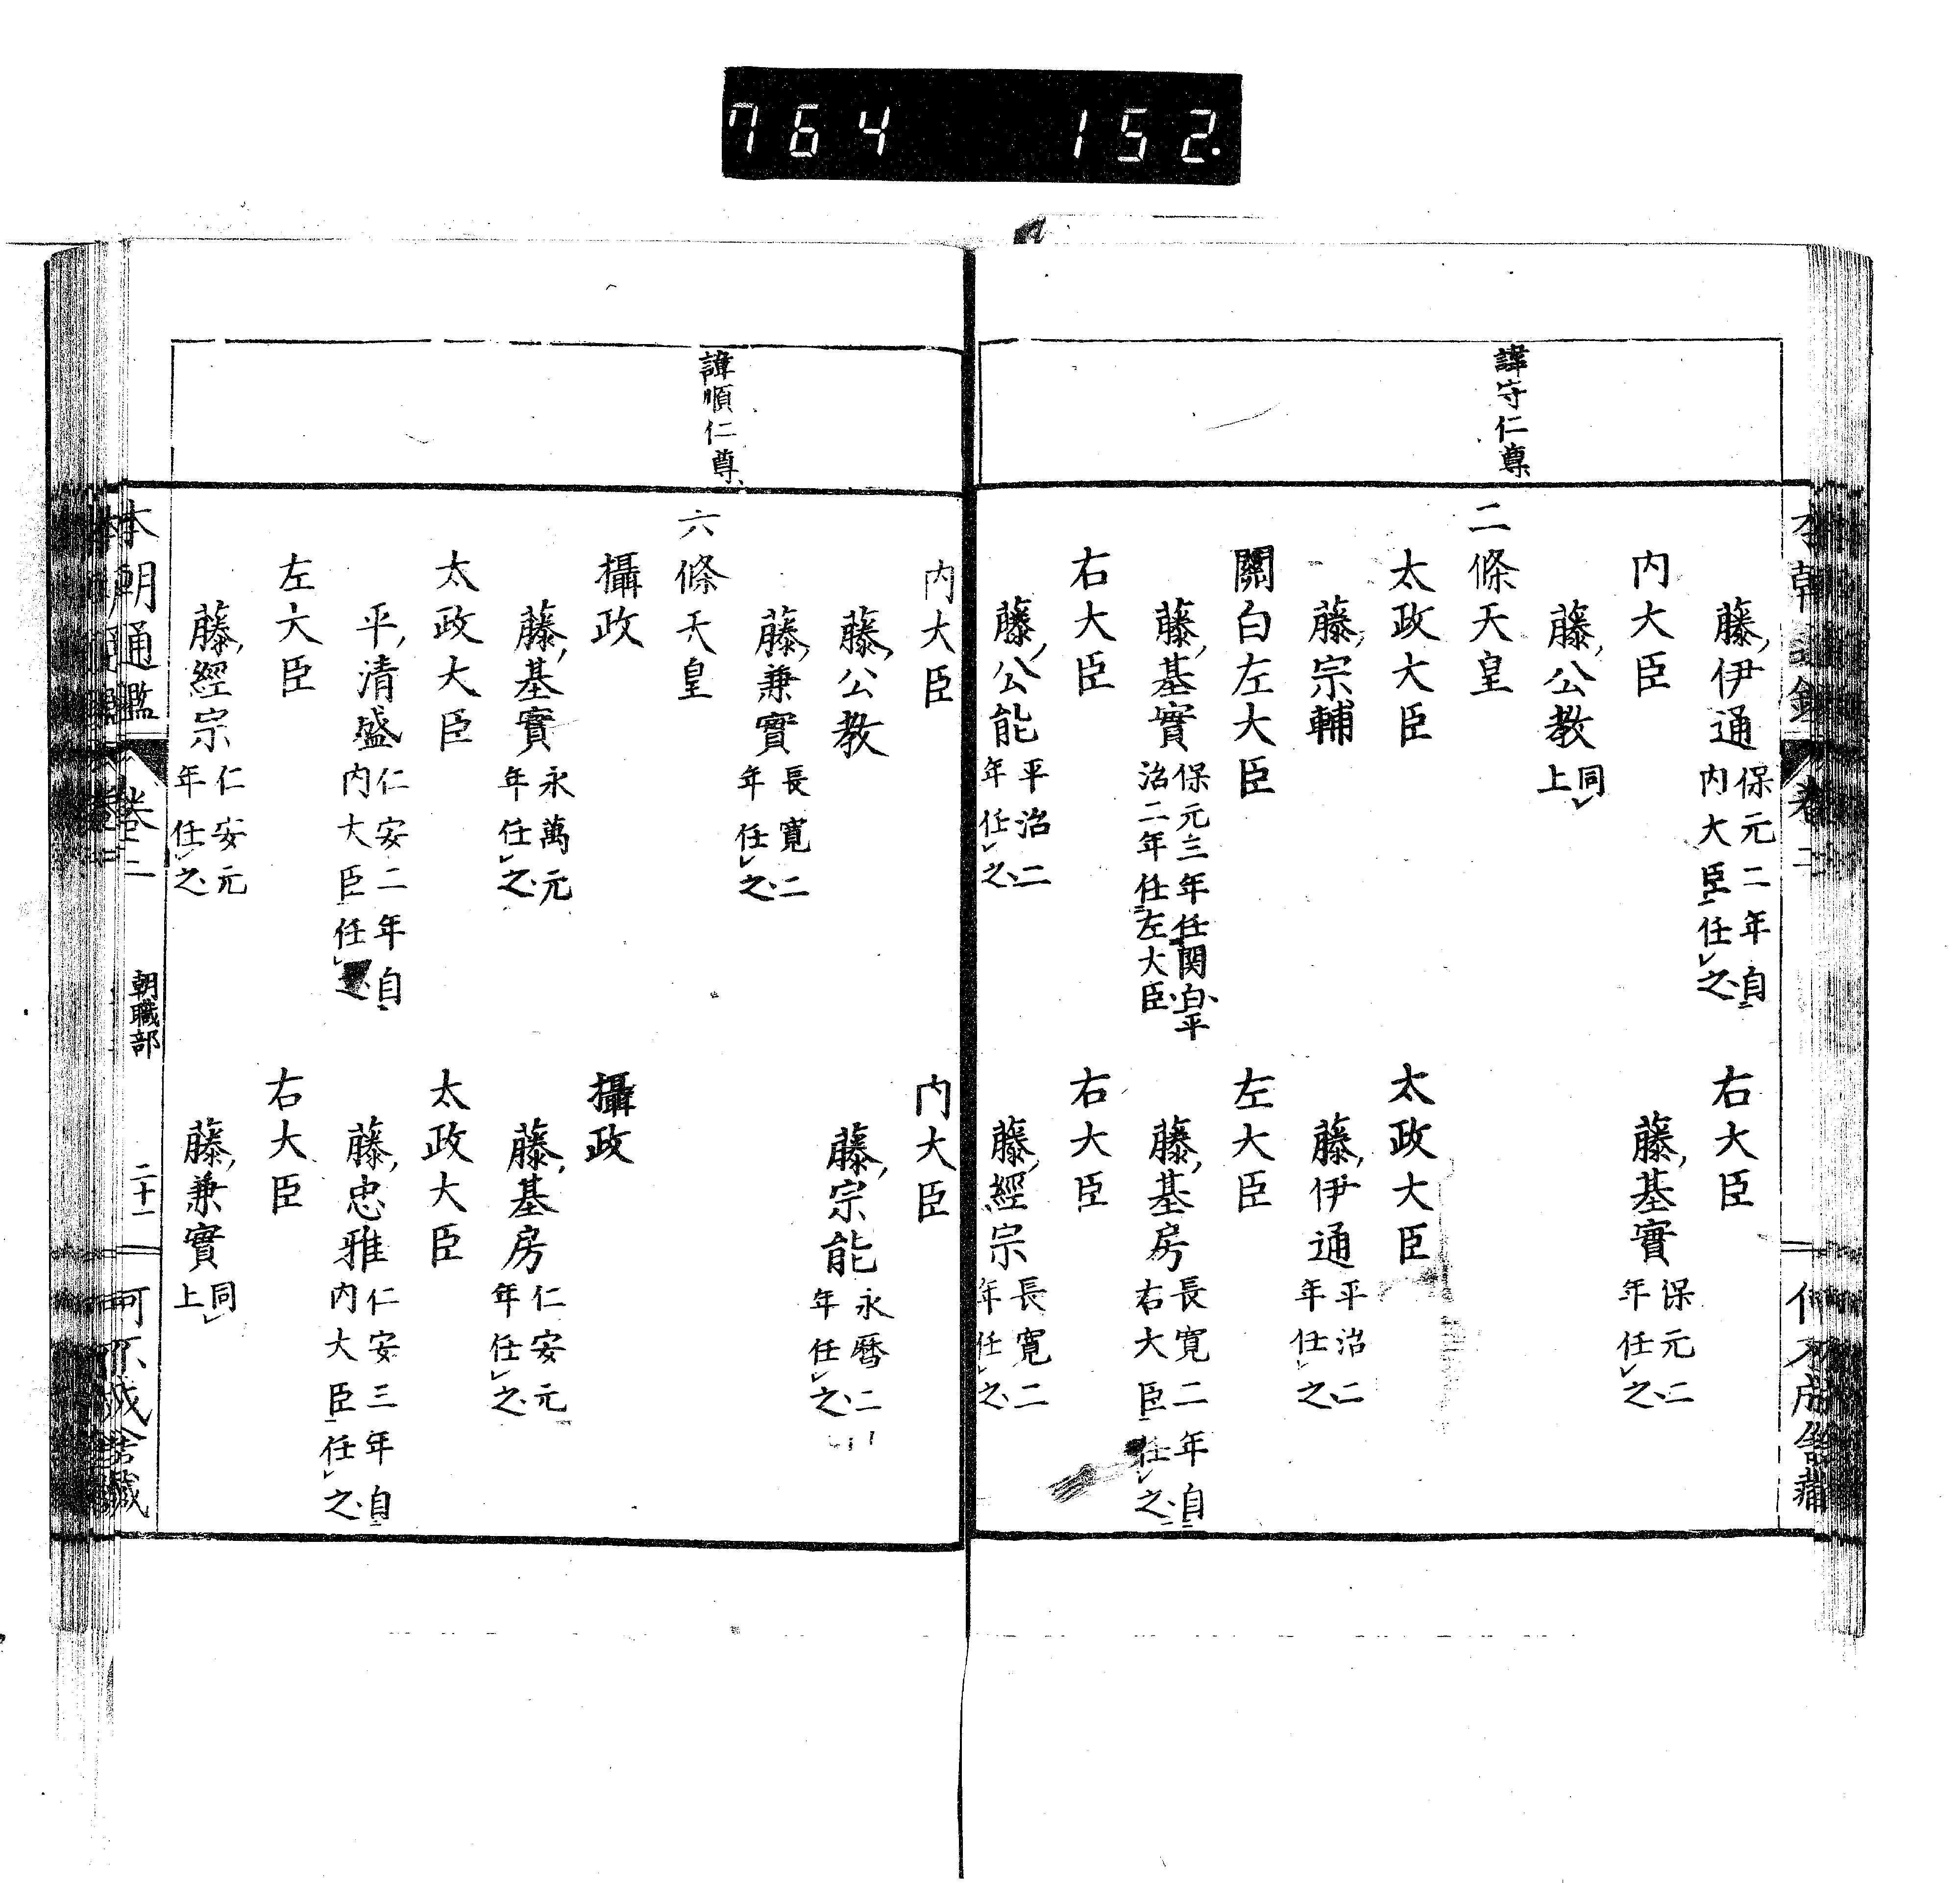 764 152.
諱守仁尊
藤伊通保元二年自内大臣任之
右大臣
内大臣
藤基實保元二年任之
藤公教同上
二條天皇
太政大臣
太政大臣
藤宗輔
藤伊通平治二年任之
關白左大臣
左大臣
藤基實保元三年任関白平治二年任左大臣
藤基房長寛二年自右大臣任之
右大臣
右大臣
藤公能平治二年任之
藤經宗長寛二年任之
諱順仁尊
内大臣
内大臣
藤公教
藤宗能永暦二年任之
藤兼實長寛二年任之
六條天皇
攝政
攝政
藤基實永萬元年任之
藤基房仁安元年任之
太政大臣
太政大臣
平清盛仁安二年自内大臣任之
藤忠雅仁安三年自内大臣任之
左大臣
右大臣
藤經宗仁安元年任之
藤兼實同上
本朝通鑑 卷二 朝職部 二十一